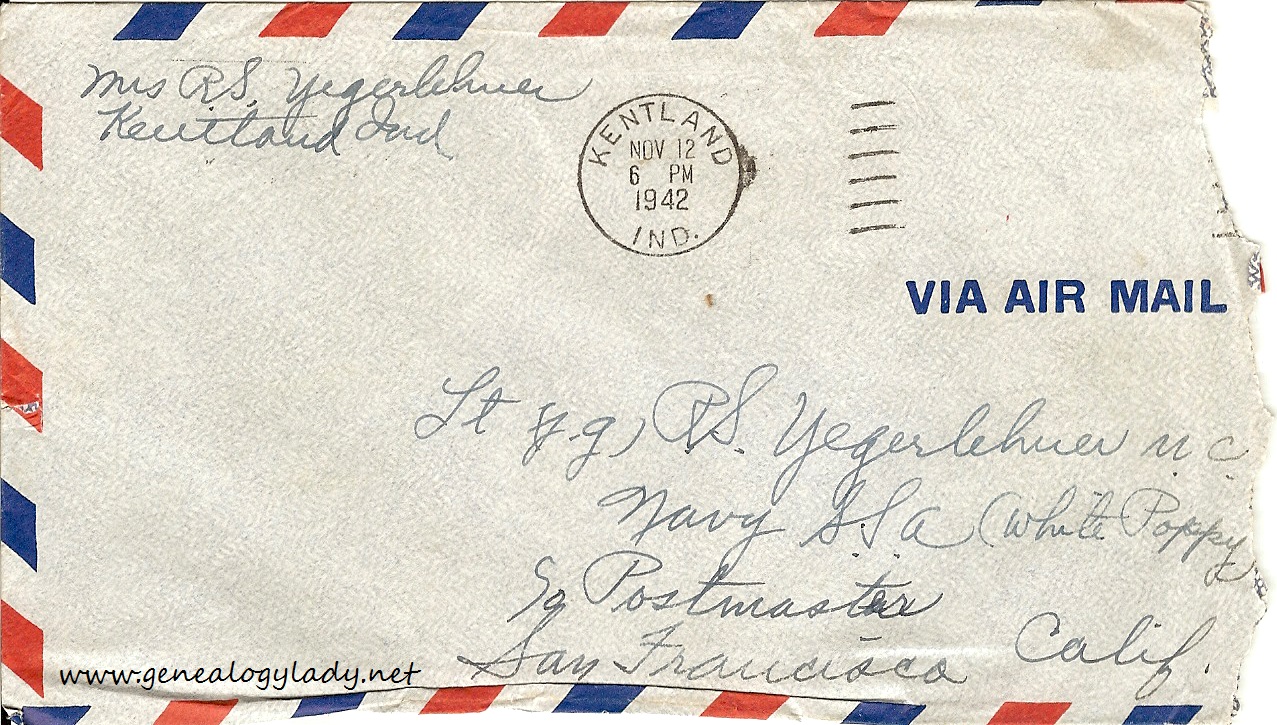 Mrs R.S. Yegerlehner
Kentland Ind.
KENTLAND
NOV 12
6 PM
1942
IND.
VIA AIR MAIL
Lt (j-g) R.S. Yegerlehner M.C.
Navy S.S.A. (White Poppy
c/o Postmaster
San Francisco Calif.
www.genealogylady.net